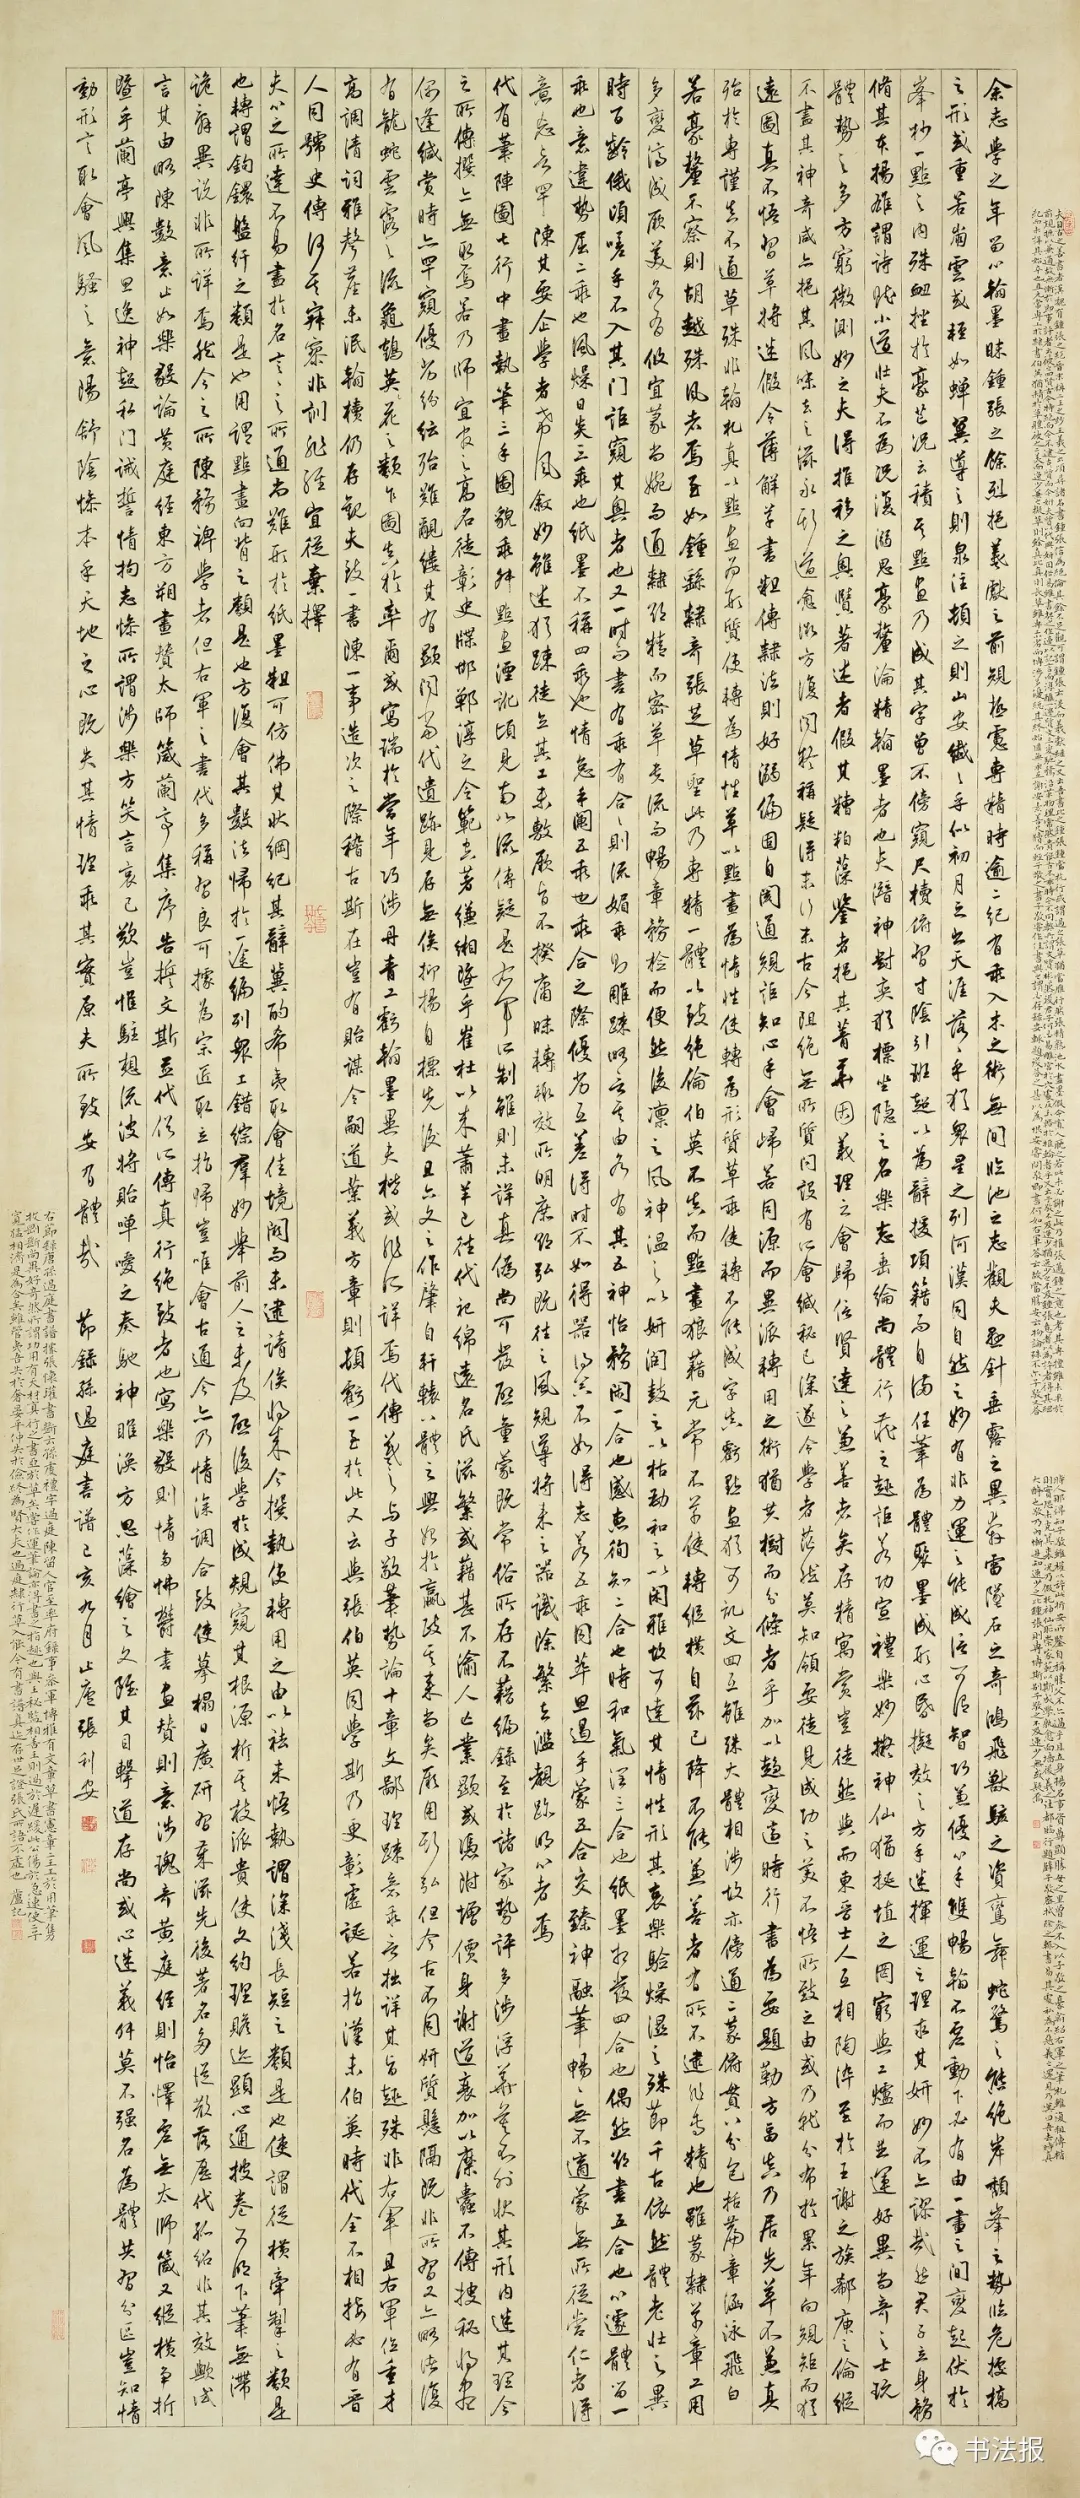 余志學之年留心翰墨味鍾張之餘烈挹羲獻之前規極慮專精時逾二紀有乖入木之術無間臨池之志觀夫懸針垂露之異奔雷墜石之奇鴻飛獸駭之資鸞舞蛇驚之態絕岸頹峯之勢臨危據槁
之形或重若崩雲或輕如蟬翼導之則泉注頓之則山安纖々乎似初月之出天涯落々乎猶眾星之列河漢同自然之妙有非力運之能成信可謂智巧兼優心手雙暢翰不虛動下必有由一畫之間變起伏於
峯杪一點之內殊衄挫於豪芒況云積其點畫乃成其字曾不傍窺尺櫝俯習寸陰引班超以為辭援項籍而自滿任筆為體聚墨成形心昏擬效之方手迷揮運之理求其妍妙不亦謬哉然君子立身務
脩其本揚雄謂詩賦小道壯夫不為況復溺思豪釐淪精翰墨者也夫潛神對奕猶標坐隱之名樂志垂綸尚體行藏之趣詎若功宣禮樂妙擬神仙猶埏埴之罔窮與工爐而並運好異尚奇之士玩
體勢之多方窮微測妙之夫得推移之奧賾著述者假其糟粕藻鑒者挹其菁華固義理之會歸信賢達之兼善者矣存精寓賞豈徒然與而東晉士人互相陶淬至於王謝之族郗庾之倫縱
不盡其神奇咸亦挹其風味去之滋永斯道愈微方復聞疑稱疑得末行末古今阻絕無所質問設有所會緘秘已深遂令學者茫然莫知領要徒見成功之美不悟所致之由或乃就分布於累年向規矩而猶
遠圖真不悟習草將迷假令薄解草書粗傳隸法則好溺偏固自閡通規詎知心手會歸若同源而異派轉用之術猶共樹而分條者乎加以趨變適時行書為要題勒方畐真乃居先草不兼真
殆於專謹真不通草殊非翰札真以點畫為形質使轉為情性草以點畫為情性使轉為形質草乖使轉不能成字真虧點畫猶可記文回互雖殊大體相涉故亦傍通二篆俯貫八分包括篇章涵泳飛白
若豪釐不察則胡越殊風者焉至如鍾繇隸奇張芝草聖此乃專精一體以致絕倫伯英不真而點畫狼藉元常不草使轉縱橫自茲已降不能兼善者有所不逮非專精也雖篆隸草章工用
多變濟成厥美各有攸宜篆尚婉而通隸欲精而密草貴流而暢章務檢而便然後凜之風神溫之以妍潤鼓之以枯勁和之以閑雅故可達其情性形其哀樂驗燥濕之殊節千古依然體老壯之異
時百齡俄頃嗟乎不入其門詎窺其奧者也又一時而書有乖有合々則流媚乖則雕疎略言其由各有其五神怡務閑一合也感惠徇知二合也時和氣潤三合也紙墨相發四合也偶然欲書五合也心遽體留一
乖也意違勢屈二乖也風燥日炎三乖也紙墨不稱四乖也情怠手闌五乖也乖合之際優劣互差得時不如得器得器不如得志若五乖同萃思遏手蒙五合交臻神融筆暢々無不適蒙無所從當仁者得
意忘言罕陳其要企學者希風敘妙雖述猶疎徒立其工未敷厥旨不揆庸昧輒效所明庶欲弘既往之風規導將來之器識除繁去濫覩跡明心者焉
代有筆陣圖七行中畫執筆三手圖貌乖舛點畫湮訛頃見南北流傳疑是右軍所制雖則未詳真偽尚可發啓童蒙既常俗所存不藉編錄至於諸家勢評多涉浮華莫不外狀其形內迷其理今
之所傳撰亦無取焉若乃師宜官之高名徒彰史牒邯鄲淳之令範空著縑緗暨乎崔杜以來蕭羊已往代祀綿遠名氏滋繁或藉甚不渝人亡業顯或憑附增價身謝道衰加以糜蠹不傳搜秘將盡
偶逢緘賞時亦罕窺優劣紛紜殆難覼縷其有顯聞當代遺跡見存無俟抑揚自標先後且六文之作肇自軒轅八體之興始於嬴政其來尚矣厥用斯弘但今古不同妍質懸隔既非所習又亦略諸復
有龍蛇雲露之流龜鶴英花之類乍圖真於率爾或寫瑞於當年巧涉丹青工虧翰墨異夫楷式非所詳焉代傳羲之與子敬筆勢論十章文鄙理疎意乖言拙詳其旨趣殊非右軍且右軍位重才
高調清詞雅聲塵未泯翰櫝仍存觀夫致一書陳一事造次之際稽古斯在豈有貽謀令嗣道葉義方章則頓虧一至於此又云與張伯英同學斯乃更彰虛誕若指漢末伯英時代全不相接必有晉
人同號史傳何其寂寥非訓非經宜從棄擇
夫心之所達不易盡於名言々之所通尚難形於紙墨粗可仿佛其狀綱紀其辭冀酌希夷取會佳境闕而未逮請俟將來今撰執使轉用之由以祛未悟執謂深淺長短之類是也使謂縱橫牽掣之類是
也轉謂鉤鐶盤紆之類是也用謂點畫向背之類是也方復會其數法歸於一途編列眾工錯綜群妙舉前人之未及啓後學於成規窺其根源析其枝派貴使文約理贍跡顯心通披卷可明下筆無滯
詭辭異說非所詳焉然今之所陳務裨學者但右軍之書代多稱習良可據為宗匠取立指歸豈唯會古通今亦乃情深調合致使摹搨日廣研習歲滋先後著名多從散落歷代孤紹非其效歟試
言其由略陳數意止如樂毅論黃庭經東方朔畫贊太師箴蘭亭集序告誓文斯並代俗所傳真行絕致者也寫樂毅則情多怫鬱書畫贊則意涉瑰奇黃庭經則怡懌虛無太師箴又縱橫爭折
暨乎蘭亭興集思逸神超私門誡誓情拘志慘所謂涉樂方笑言哀已歎豈惟駐想流波將貽嘽噯之奏馳神睢渙方思藻繪之文雖其目擊道存尚或心迷義舛莫不強名為體共習分區豈知情
動形言取會風騷之意陽舒陰慘本乎天地之心既失其情理乖其實原夫所致安有體哉 節錄孫過庭書譜己亥九月止廬張利安
书法报